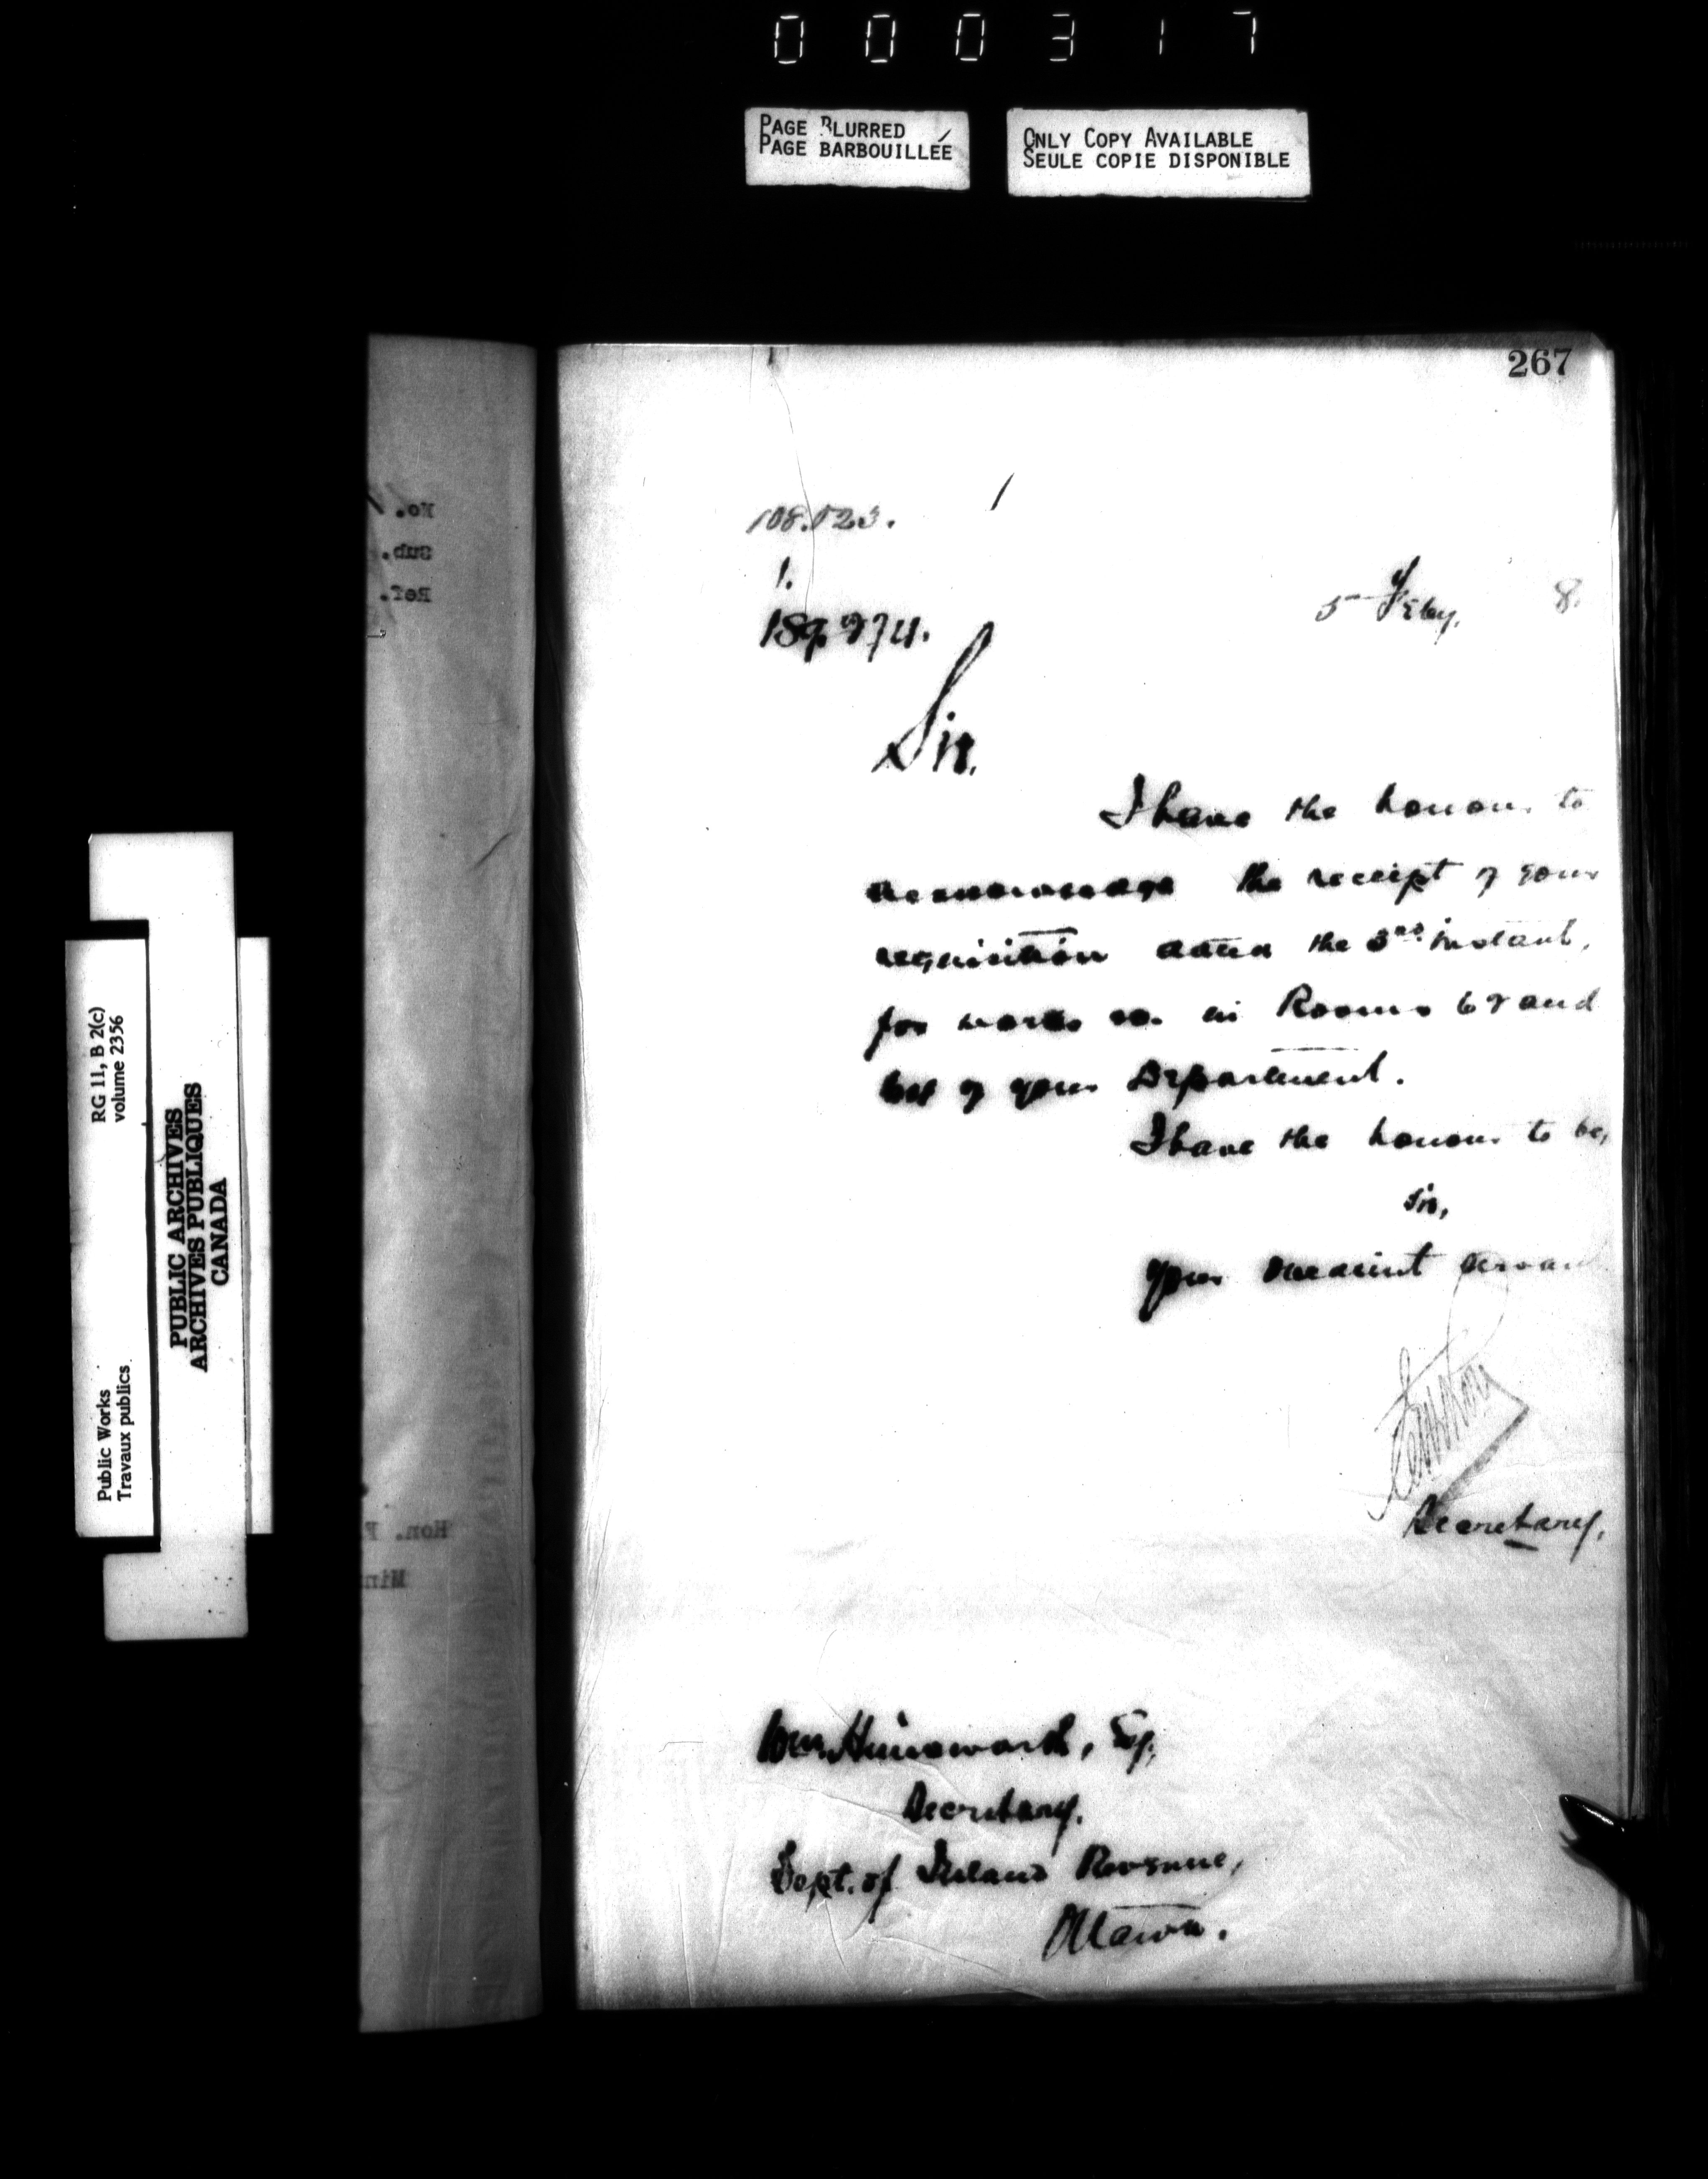 000317
PAGE BLURRED
PAGE BARBOUILLÉE
ONLY COPY AVAILABLE
SEULE COPIE DISPONIBLE
267
No.
Sub.
Ref.
108.523.
1.
5 Feby. 8.
Sir.
I have the honour to
acknowledge the receipt of your
requisition dated the 3rd instant,
for works in Rooms and
of your Department.
I have the honour to be,
Sir,
Your obedient servant
Secretary.
Hon.
Min
Wm. Himsworth, Esq.
Secretary.
Dept. of Inland Revenue,
Ottawa.
RG 11, B 2(c)
volume 2356
Public Works
Travaux publics
PUBLIC ARCHIVES
ARCHIVES PUBLIQUES
CANADA